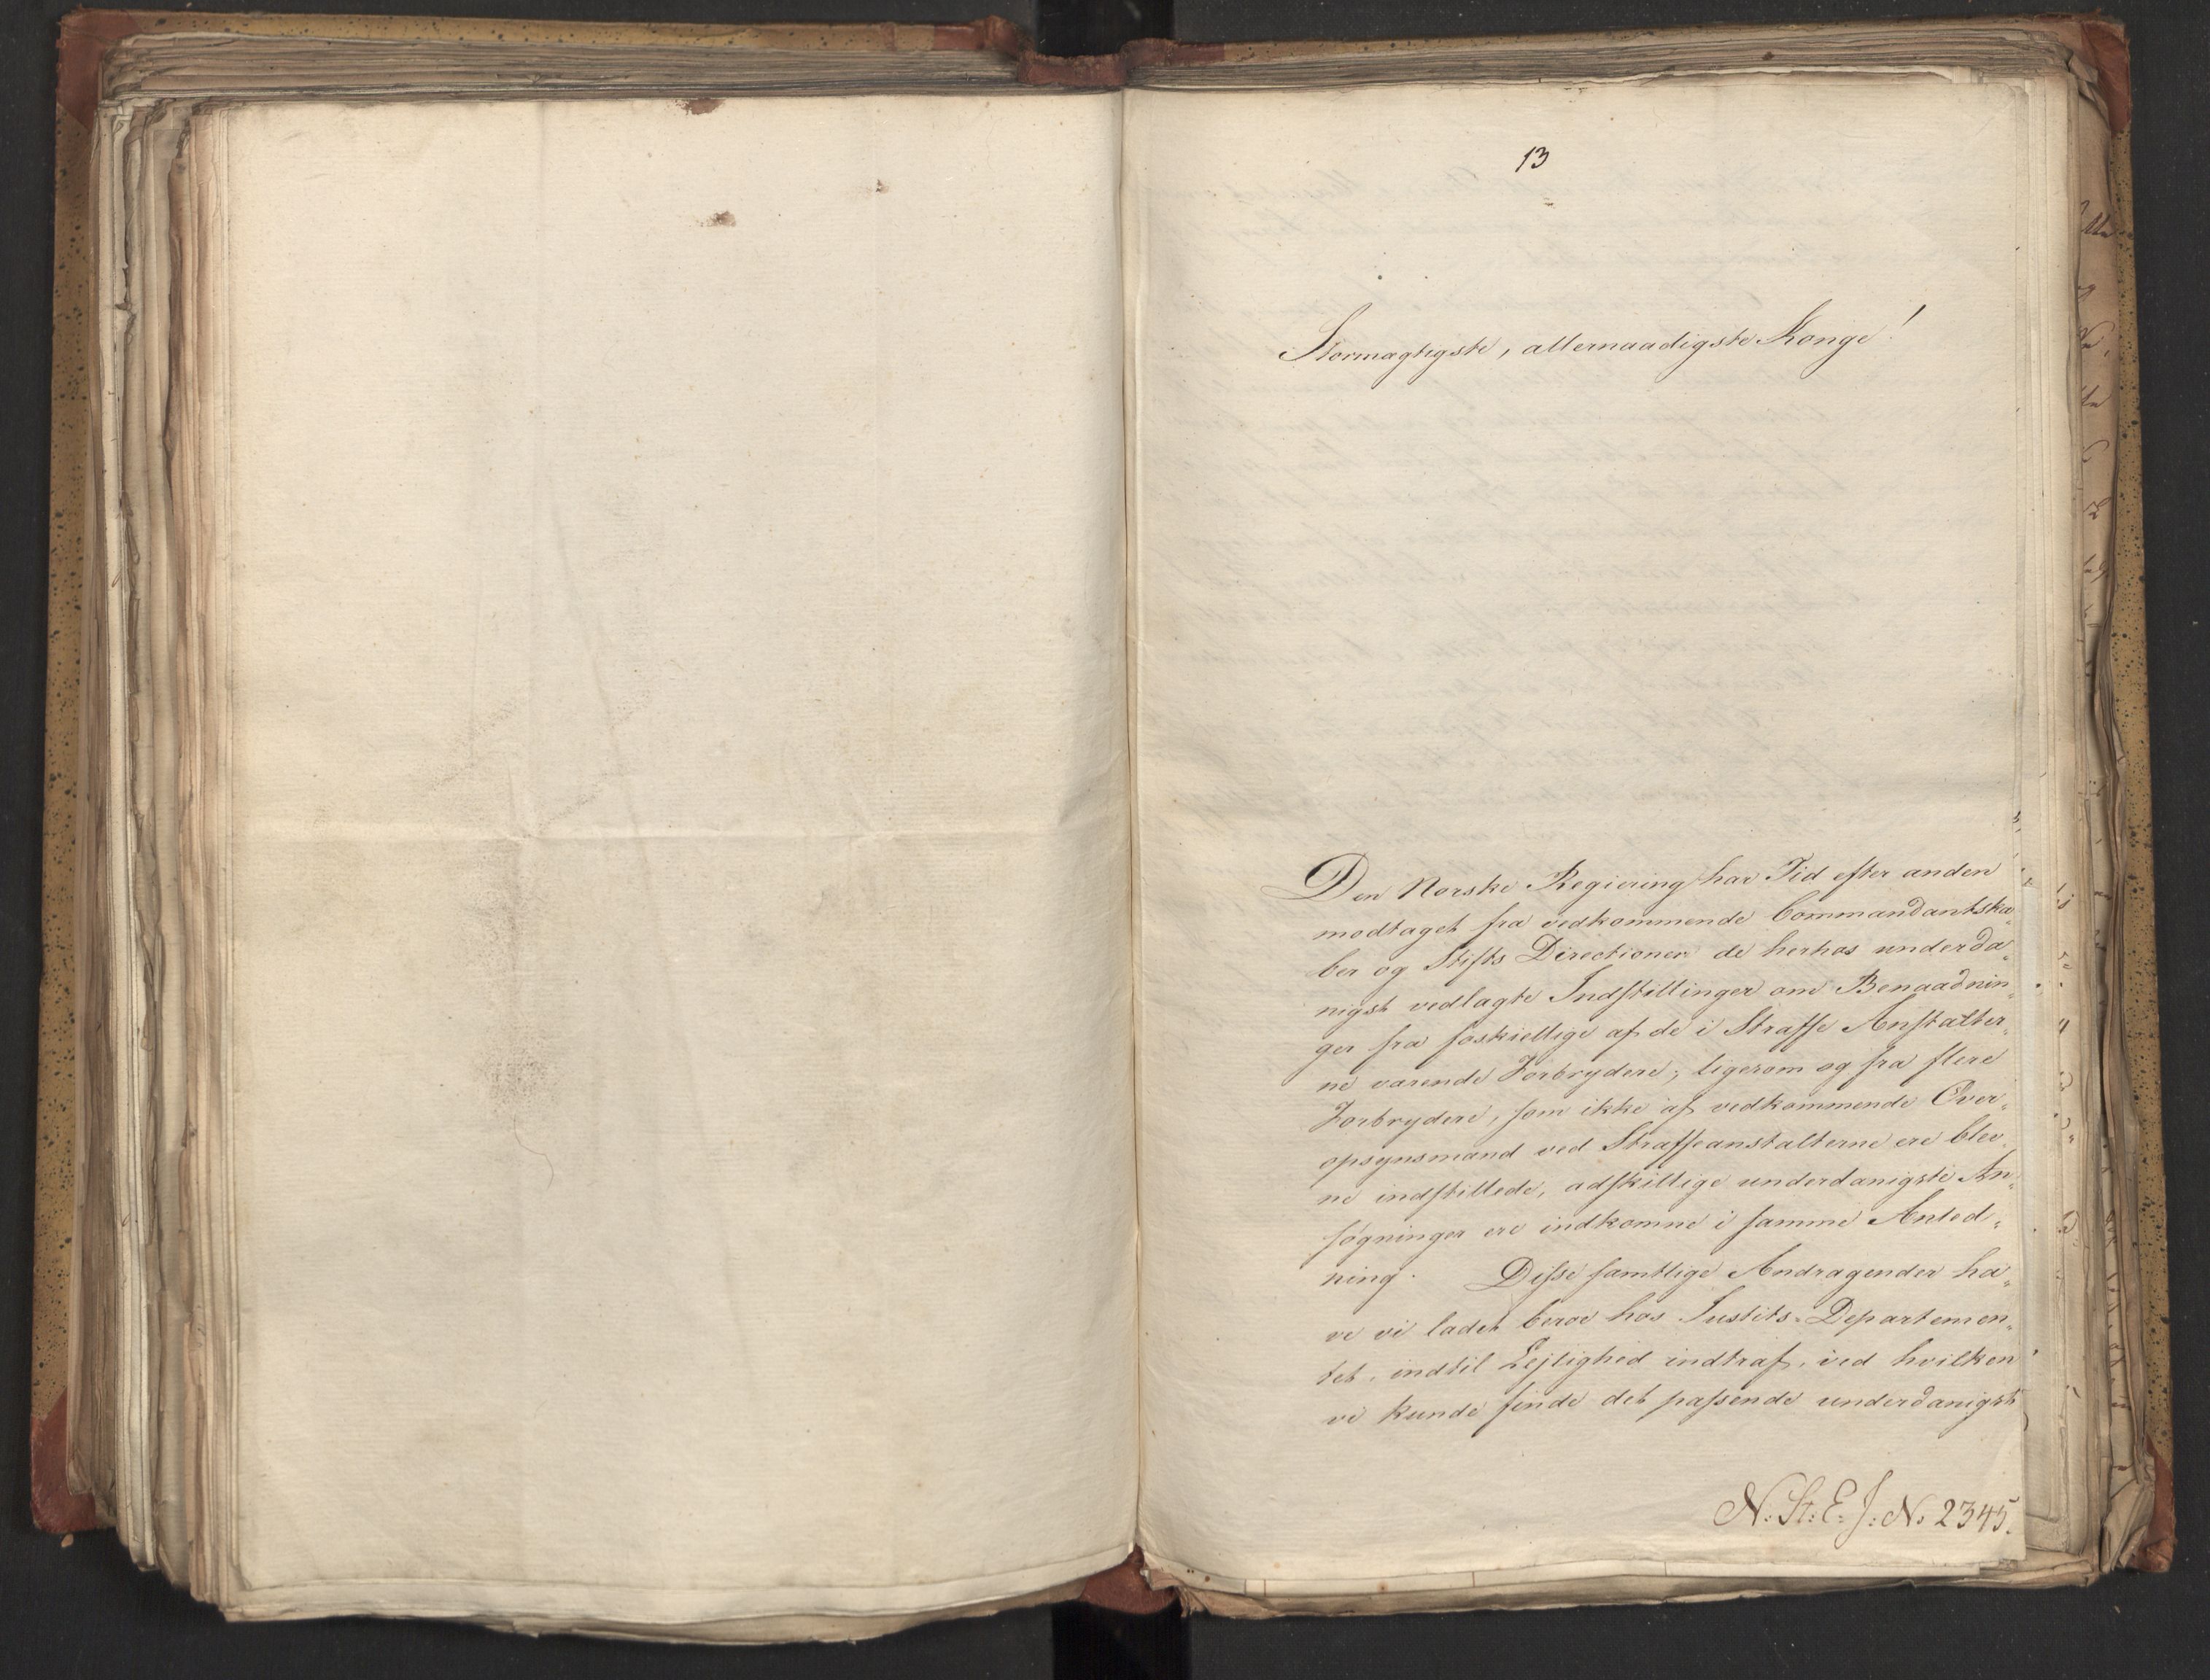 13
Stormægtigste, allernaadigste Konge!
Den Norske Regiering har Tid efter anden
modtaget fra vedkommende Commandantska„
ber og Stifts Directioner de herhos underda„
nigst vedlagte Indstillinger om Benaadnin„
ger fra forskiellige af de i Straffe Anstalter„
ne værende Forbrydere; ligesom og fra flere
Forbrydere, som ikke af vedkommende Over„
opsynsmænd ved Straffeanstalterne ere blev„
ne indstillede, adskillige underdanigste An„
søgninger ere indkomne i samme Anled„
ning. Disse samtlige Andragender ha„
ve vi ladet beroe hos Justits-Departemen„
tet, indtil Lejlighed indtraf, ved hvilken
vi kunde finde det passende underdanigst
N: St: E: J: N. 2345.